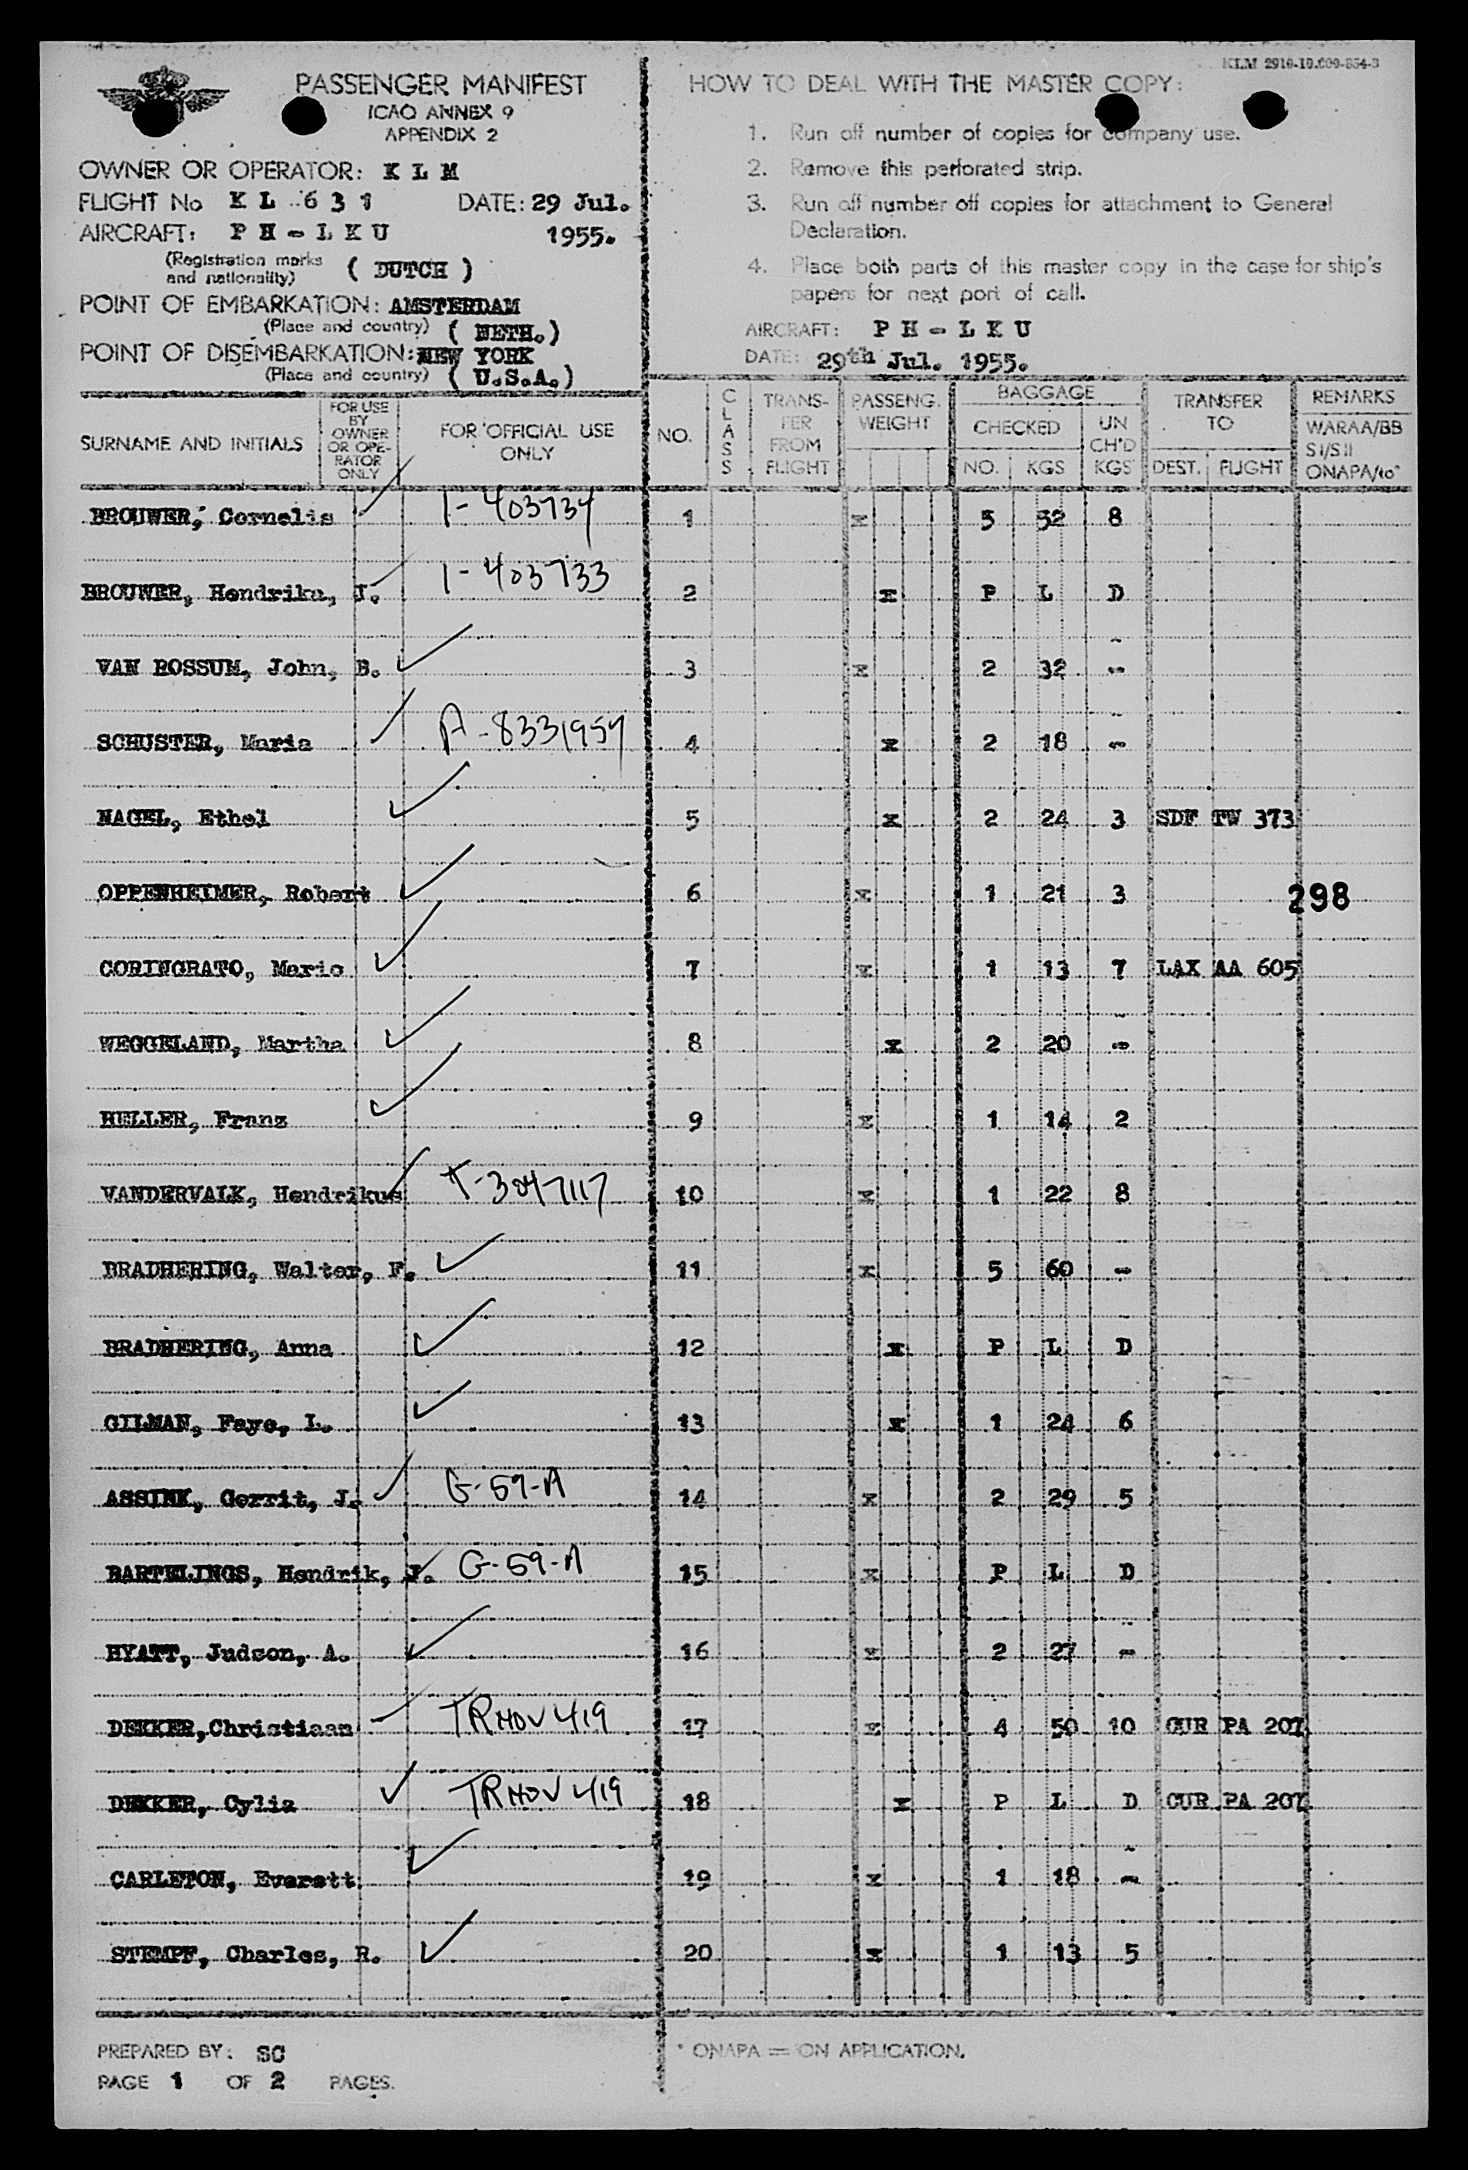 KLM 2910-10.000-854-3
PASSENGER MANIFEST
ICAO ANNEX 9
APPENDIX 2
OWNER OR OPERATOR: K L M
FLIGHT No K L 6 3 1 DATE: 29 Jul.
AIRCRAFT: P H - L K U 1955.
(Registration marks
and nationality) ( DUTCH )
POINT OF EMBARKATION: AMSTERDAM
(Place and country) ( NETH.)
POINT OF DISEMBARKATION: NEW YORK
(Place and country) ( U.S.A.)
HOW TO DEAL WITH THE MASTER COPY:
1. Run off number of copies for company use.
2. Remove this perforated strip.
3. Run off number off copies for attachment to General
Declaration.
4. Place both parts of this master copy in the case for ship's
papers for next port of call.
AIRCRAFT: P H - L K U
DATE: 29th Jul. 1955.
SURNAME AND INITIALS
FOR USE
BY
OWNER
OR OPE-
RATOR
ONLY
FOR OFFICIAL USE
ONLY
NO.
CLASS
TRANS-
FER
FROM
FLIGHT
PASSENG.
WEIGHT
BAGGAGE
CHECKED
NO. KGS
UN
CH'D
KGS
TRANSFER
TO
DEST. FLIGHT
REMARKS
WARAA/BB
SI/SII
ONAPA/to*
BROUWER, Cornelis 1-403734 1 x 5 52 8
BROUWER, Hendrika, J. 1-403733 2 x P L D
VAN ROSSUM, John, B. 3 x 2 32 -
SCHUSTER, Maria A-8331954 4 x 2 18 -
NAGEL, Ethel 5 x 2 24 3 SDF TW 373
OPPENHEIMER, Robert 6 x 1 21 3 298
CORINGRATO, Mario 7 x 1 13 7 LAX AA 605
WEGGELAND, Martha 8 x 2 20 -
HELLER, Franz 9 x 1 14 2
VANDERVALK, Hendrikus T-3047117 10 x 1 22 8
BRADHERING, Walter, F. 11 x 5 60 -
BRADHERING, Anna 12 x P L D
GILMAN, Faye, L. 13 x 1 24 6
ASSINK, Gerrit, J. G-59-A 14 x 2 29 5
BARTELINGS, Hendrik, G-59-A 15 x P L D
HYATT, Judson, A. 16 x 2 27 -
DEKKER, Christiaan TRHOV 419 17 x 4 50 10 CUR PA 207
DEKKER, Cylia TRHOV 419 18 x P L D CUR PA 207
CARLETON, Everett 19 x 1 18 -
STEMPF, Charles, R. 20 x 1 13 5
PREPARED BY: SC
PAGE 1 OF 2 PAGES.
* ONAPA = ON APPLICATION.